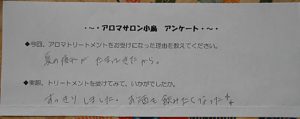 ・～・アロマサロン小島 アンケート・～・
◆今回、アロマトリートメントをお受けになった理由を教えてください。
夏の疲れが やはりきたから。
◆実際、トリートメントを受けてみて、いかがでしたか。
すっきりしました。お酒も飲みたくなったな